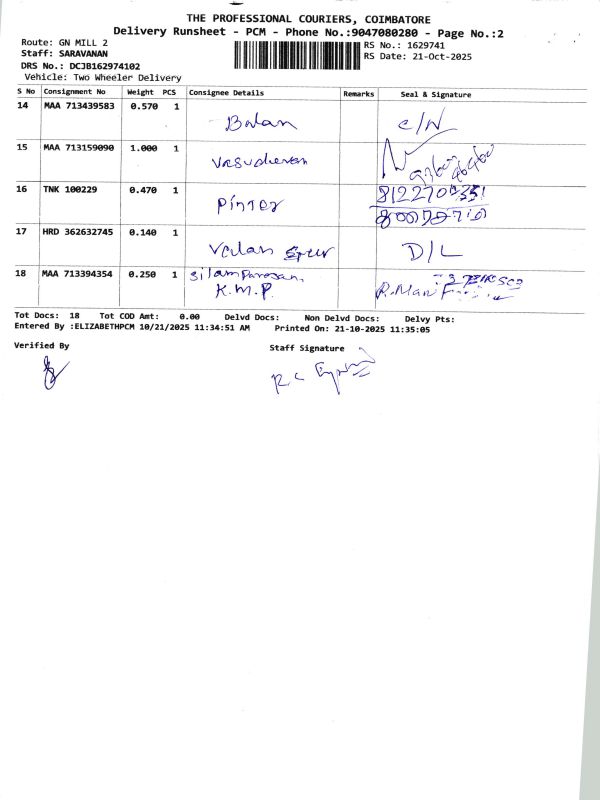 THE PROFESSIONAL COURIERS, COIMBATORE
Delivery Runsheet - PCM - Phone No.:9047080280 - Page No.:2
Route: GN MILL 2
RS No.: 1629741
Staff: SARAVANAN
RS Date: 21-Oct-2025
DRS No.: DCJB162974102
Vehicle: Two Wheeler Delivery
S No Consignment No Weight PCS Consignee Details Remarks Seal & Signature
14 MAA 713439583 0.570 1 Balan C/N
15 MAA 713159090 1.000 1 Vasudevan
16 TNK 100229 0.470 1 Printer
17 HRD 362632745 0.140 1 D/L
18 MAA 713394354 0.250 1 Silamparasan
K.M.P. R.Mani
Tot Docs: 18 Tot COD Amt: 0.00 Delvd Docs: Non Delvd Docs: Delvy Pts:
Entered By :ELIZABETHPCM 10/21/2025 11:34:51 AM Printed On: 21-10-2025 11:35:05
Verified By Staff Signature